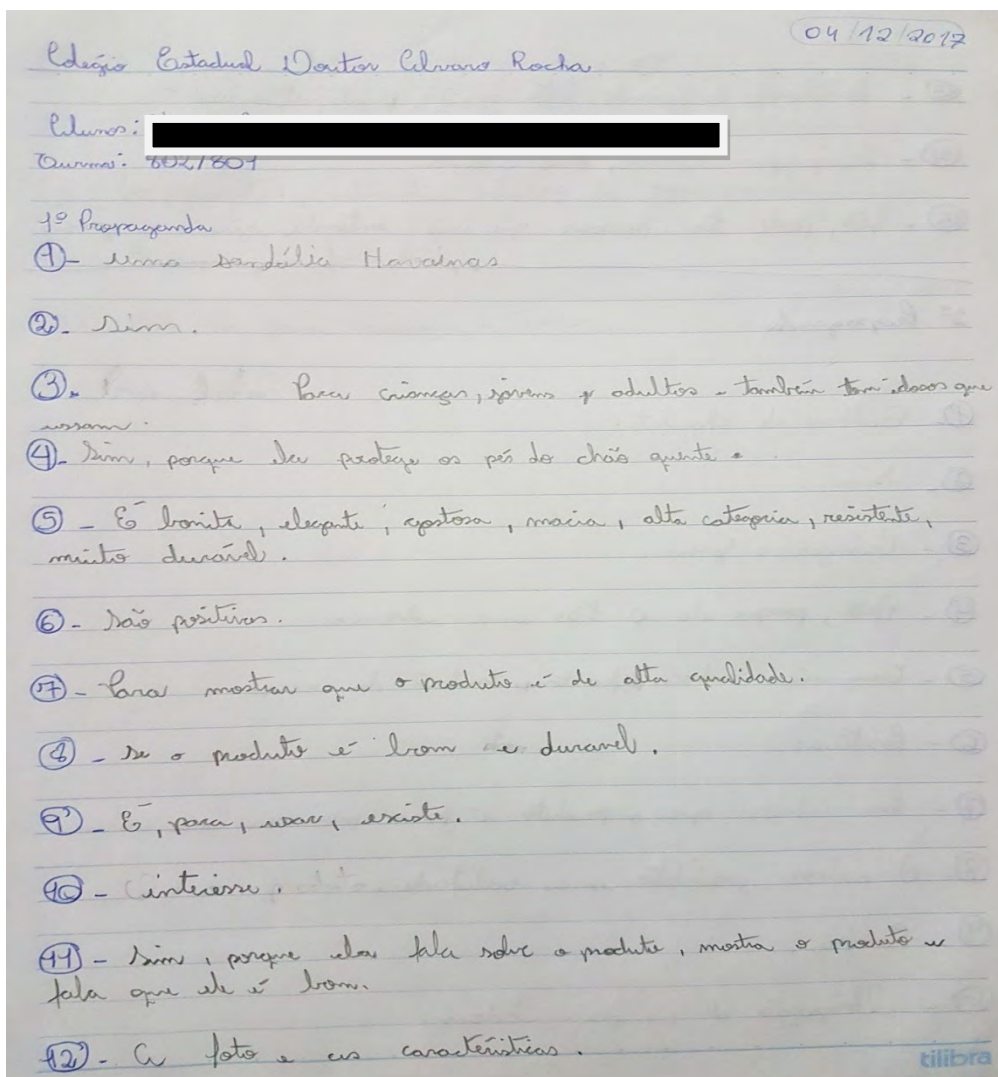 04/12/2017
Colégio Estadual Doutor Alvaro Rocha
Alunos:
Turma: 802/801
1º Propaganda
1- uma sandália Havainas
2- Sim.
3- Para crianças, jovens e adultos - também tem idosos que
ussam.
4- Sim, porque ela protege os pés do chão quente.
5- É bonita, elegante, gostosa, macia, alta categoria, resistente,
muito durável.
6- São positivas.
7- Para mostrar que o produto é de alta qualidade.
8- se o produto é bom e duravel.
9- É, para, usar, existe.
10- interesse.
11- Sim, porque ela fala sobre o produto, mostra o produto e
fala que ele é bom.
12- A foto e as características.
tilibra